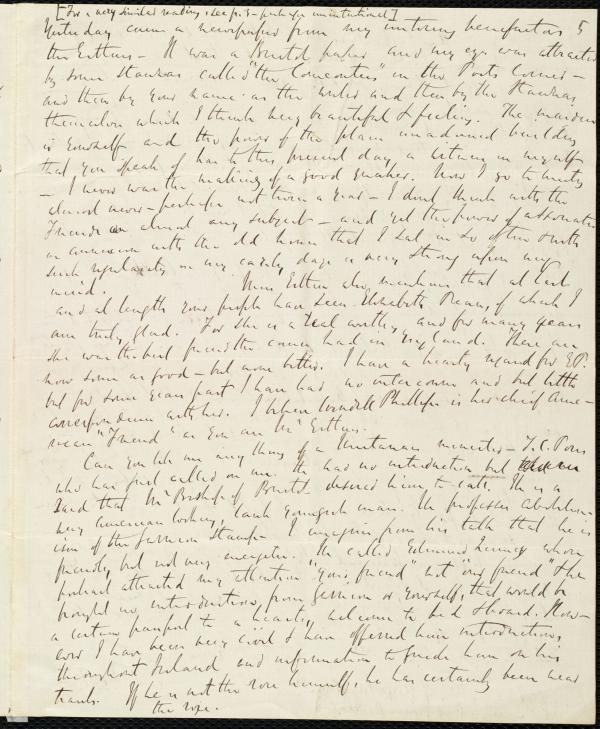 [For a very similar reading, see p. 3 - perhaps unintentional]
Yesterday came a newspaper from my untiring benefactors 5
the Estlins - It was a Bristol paper and my eye was attracted
by some stanzas called "the Conventicle" in the Poets Corner -
and then by your name as the writer and then by the stanzas
themselves which I think very beautiful & feeling. The maiden
is yourself and the power of the plain unadorned building
that you speak of has to this present day a witness in myself
- I never was the making of a good Quaker. Now I go to meeting
almost never - perhaps not twice a year - I dont think with the
Friends on almost any subject - and yet the power of association
in connexion with the old house that I sat in so often & with
such regularity in my early days is very strong upon my
mind. Miss Estlin also mentions that at last
and at length your people have seen Elizabeth Pease, of which I
am truly glad. For she is a real worthy, and for many years
she was the best friend the cause had in England. There are
now some as good - but none better. I have a hearty regard for EP.
but for some years past I have had no intercourse and but little
correspondence with her. I believe Wendell Phillips is her chief Ame-
rican "Friend" as you are Mr Estlins.
Can you tell me any thing of a Unitarian minister -
who has just called on me. He had no introduction but
said that Mr Bishop of Bristol desired him to call. He is a
very American looking, lank youngish man. He professes abolition-
ism of the Garrison stamp - I imagine from his talk that he is
friendly but not very energetic. He called Edmund Quincy whose
portrait attracted my attention "your friend" not "our friend" & he
brought no introduction from Garrison or yourself, that would be
a certain passport to a hearty welcome to bed & board. How-
ever I have been very civil & have offered him introductions
throughout Ireland and information to guide him on his
travels. If he is not the rose himself, he has certainly been near
the rose.